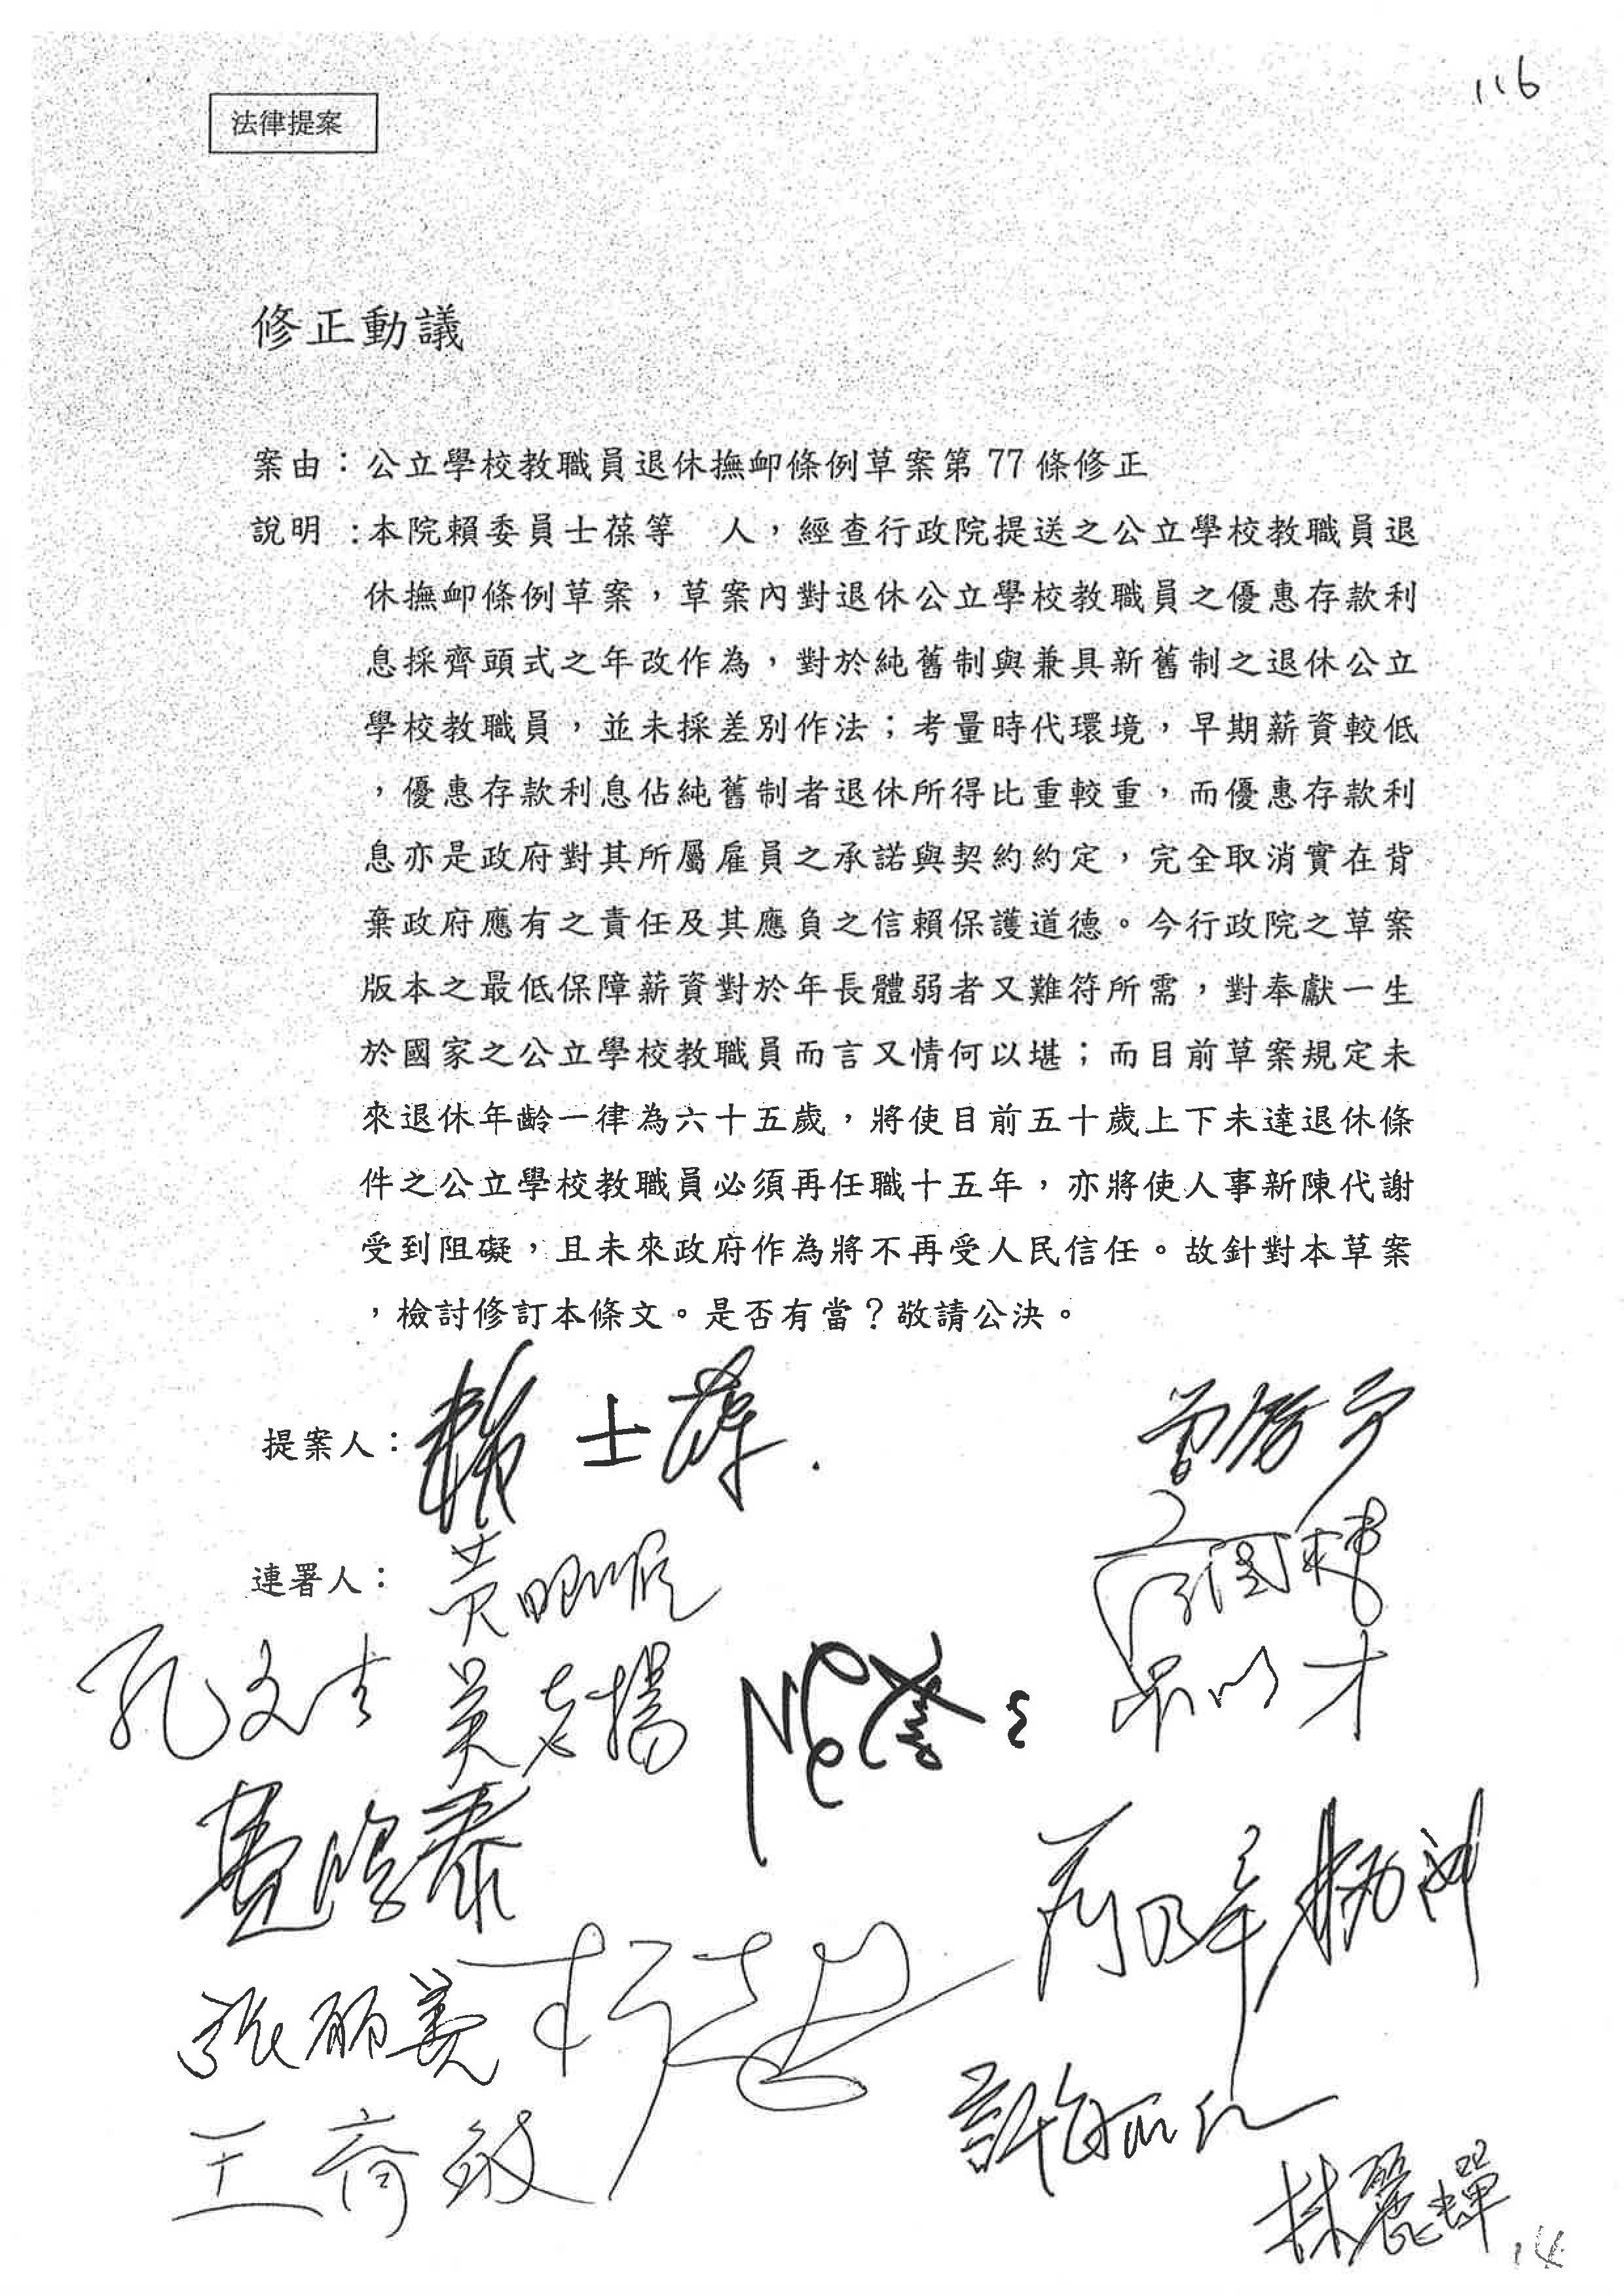 116
法律提案
修正動議
案由：公立學校教職員退休撫卹條例草案第77條修正
說明：本院賴委員士葆等　人，經查行政院提送之公立學校教職員退
休撫卹條例草案，草案內對退休公立學校教職員之優惠存款利
息採齊頭式之年改作為，對於純舊制與兼具新舊制之退休公立
學校教職員，並未採差別作法；考量時代環境，早期薪資較低
，優惠存款利息佔純舊制者退休所得比重較重，而優惠存款利
息亦是政府對其所屬雇員之承諾與契約約定，完全取消實在背
棄政府應有之責任及其應負之信賴保護道德。今行政院之草案
版本之最低保障薪資對於年長體弱者又難符所需，對奉獻一生
於國家之公立學校教職員而言又情何以堪；而目前草案規定未
來退休年齡一律為六十五歲，將使目前五十歲上下未達退休條
件之公立學校教職員必須再任職十五年，亦將使人事新陳代謝
受到阻礙，且未來政府作為將不再受人民信任。故針對本草案
，檢討修訂本條文。是否有當？敬請公決。
提案人：賴士葆
連署人：黃昭順
孔文吉
吳志揚
費鴻泰
張麗善
王育敏
林麗蟬
14